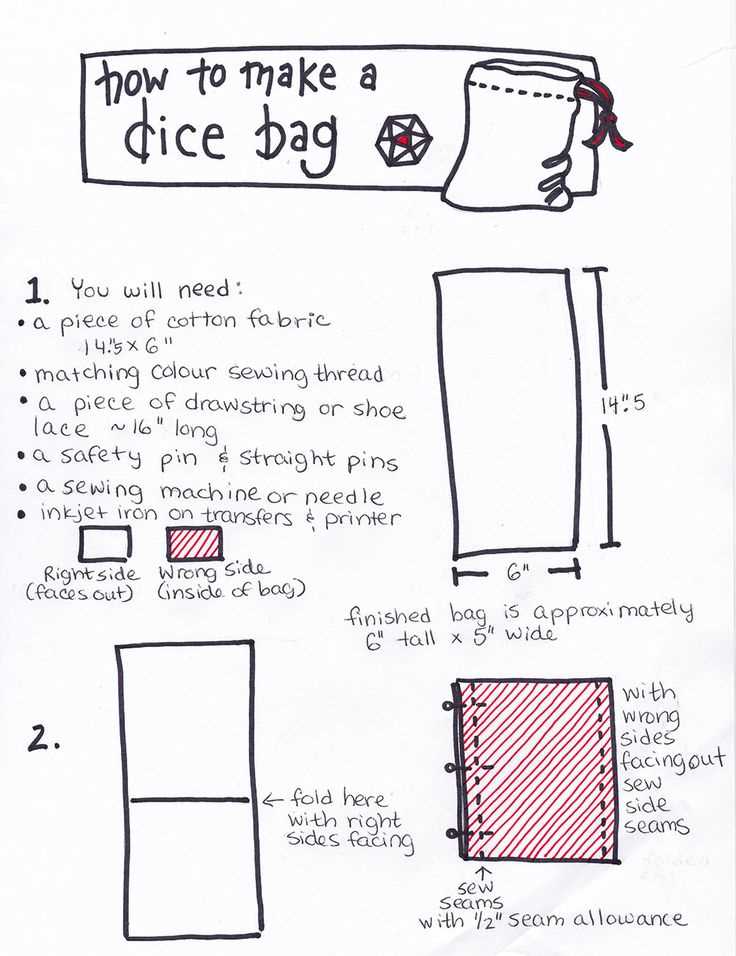 how to make a
dice bag
1. You will need:
• a piece of cotton fabric
14".5 x 6"
• matching colour sewing thread
• a piece of drawstring or shoe
lace ~16" long
• a safety pin & straight pins
• a sewing machine or needle
• inkjet iron on transfers & printer
Right side
(faces out)
Wrong side
(inside of bag)
14".5
6"
finished bag is approximately
6" tall x 5" wide
2.
← fold here
with right
sides facing
with
wrong
sides
facing out
sew
side
seams
↑
sew
seams
with 1/2" seam allowance